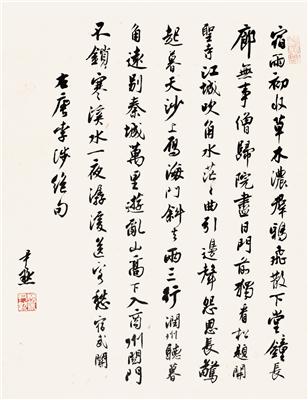 宿雨初收草木濃群鴉飛散下堂鐘長
廊無事僧歸院盡日門前獨看松題開
聖寺江城吹角水茫茫曲引邊聲怨思長驚
起暮天沙上雁海門斜去兩三行潤州聽暮
角遠別秦城萬里遊亂山高下入商州關門
不鎖寒溪水一夜潺湲送客愁宿武關
右唐李涉絕句
尹默